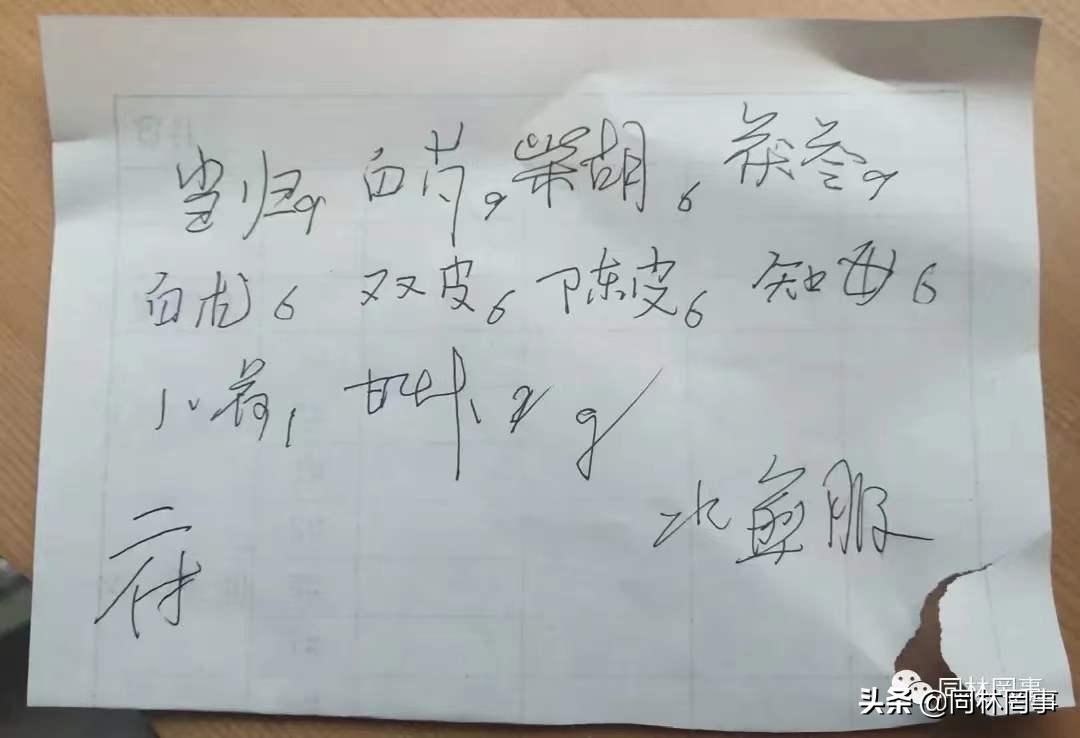 当归9 白芍9 柴胡6 茯苓9
白术6 双皮6 陈皮6 知母6
小荷1 甘草 g
二付
水煎服
同林闲事
头条 @同林闲事